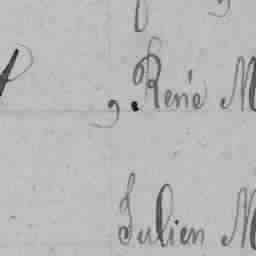 , René M
Julien M